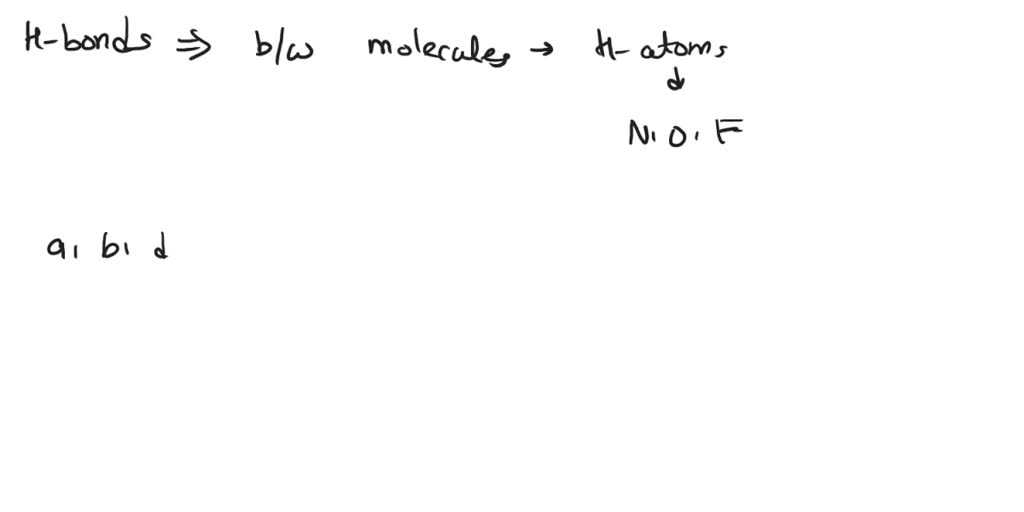 H-bonds ⇒ b/w molecules → H-atoms
↓
N, O, F
a, b, d